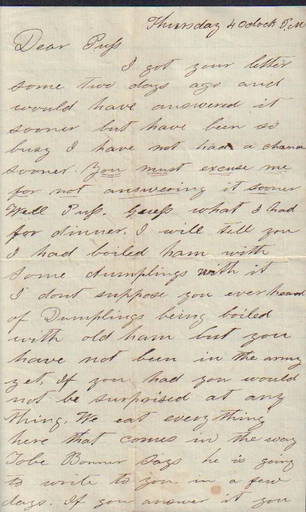 Thursday 4 Oclock P.M
Dear Puss
I got your letter
some two days ago and
would have answered it
sooner but have been so
busy I have not had a chance
sooner. You must excuse me
for not answering it sooner
Well Puss. Guess what I had
for dinner. I will tell you
I had boiled ham with
some dumplings with it
I dont suppose you ever heard
of Dumplings being boiled
with old ham but you
have not been in the army
yet. If you had you would
not be surprised at any
thing. We eat everything
here that comes in the way
Tobe Bonner Says he is going
to write to you in a few
days. If you answer it you